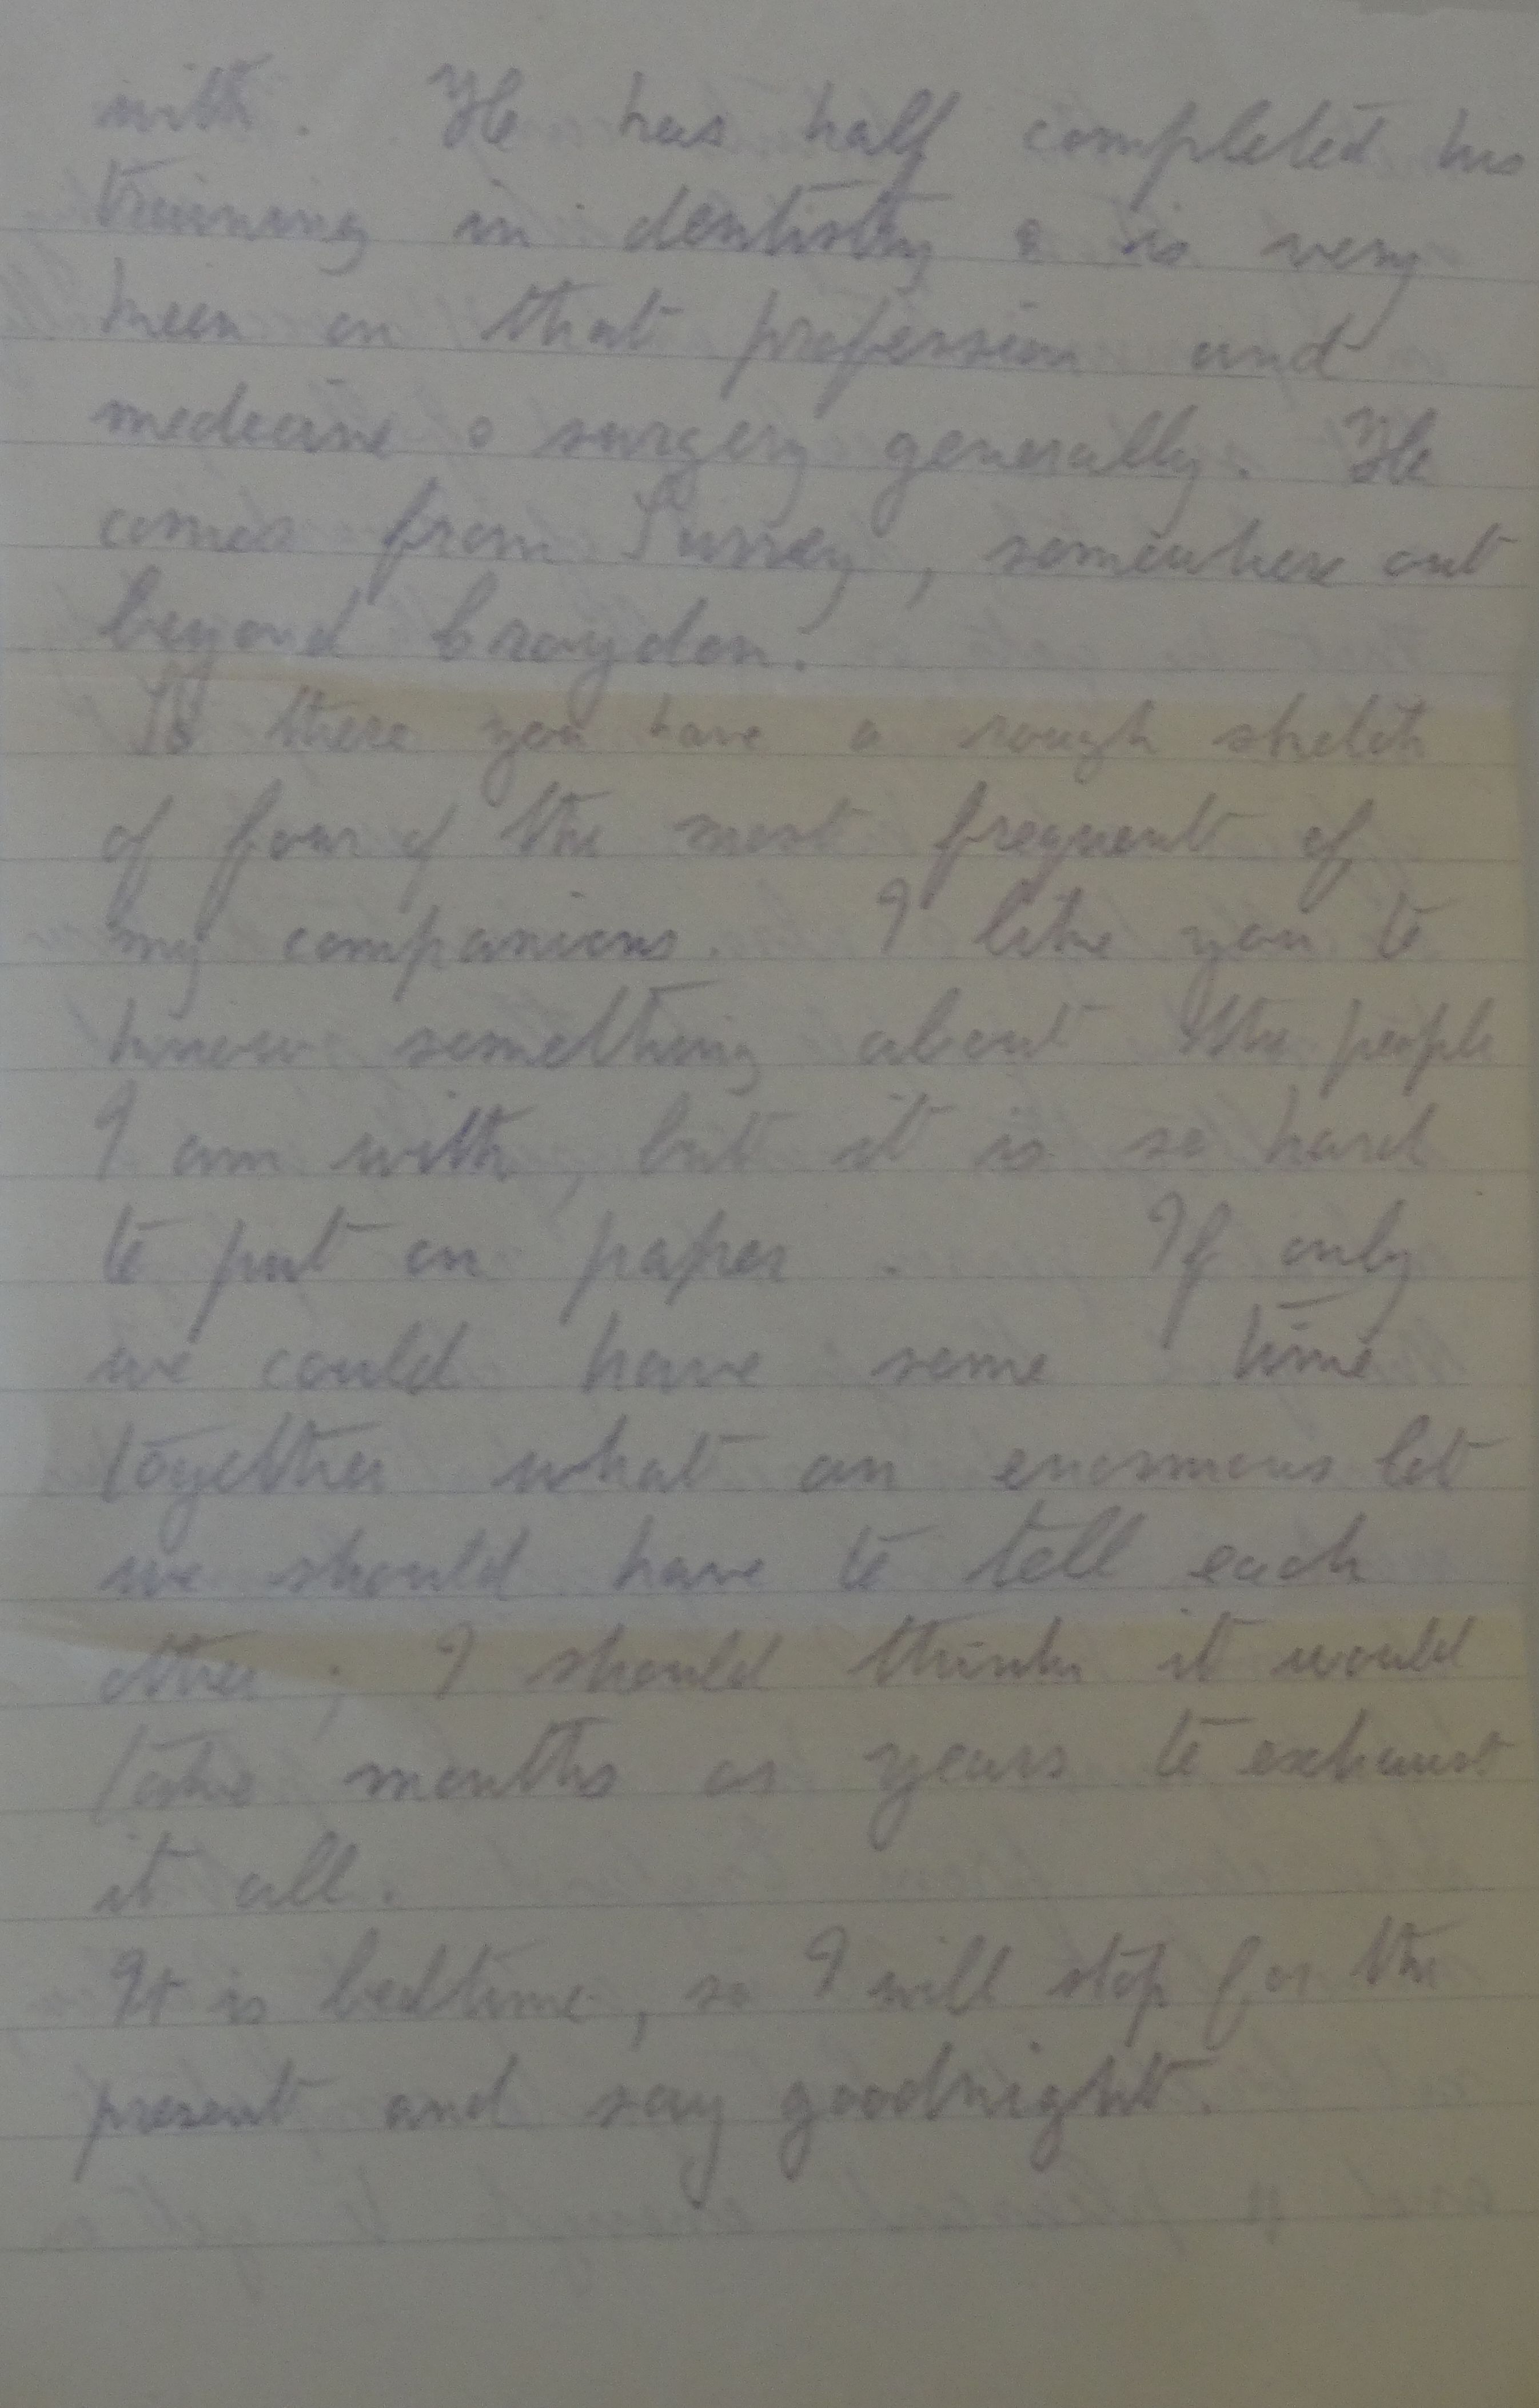 with. He has half completed his
training in dentistry & is very
keen on that profession and
medicine & surgery generally. He
comes from Surrey, somewhere out
beyond Croydon.
So there you have a rough sketch
of four of the most frequent of
my companions. I like you to
know something about the people
I am with, but it is so hard
to put on paper. If only
we could have some time
together what an enormous lot
we should have to tell each
other; I should think it would
take months or years to exhaust
it all.
It is bedtime, so I will stop for the
present and say goodnight.